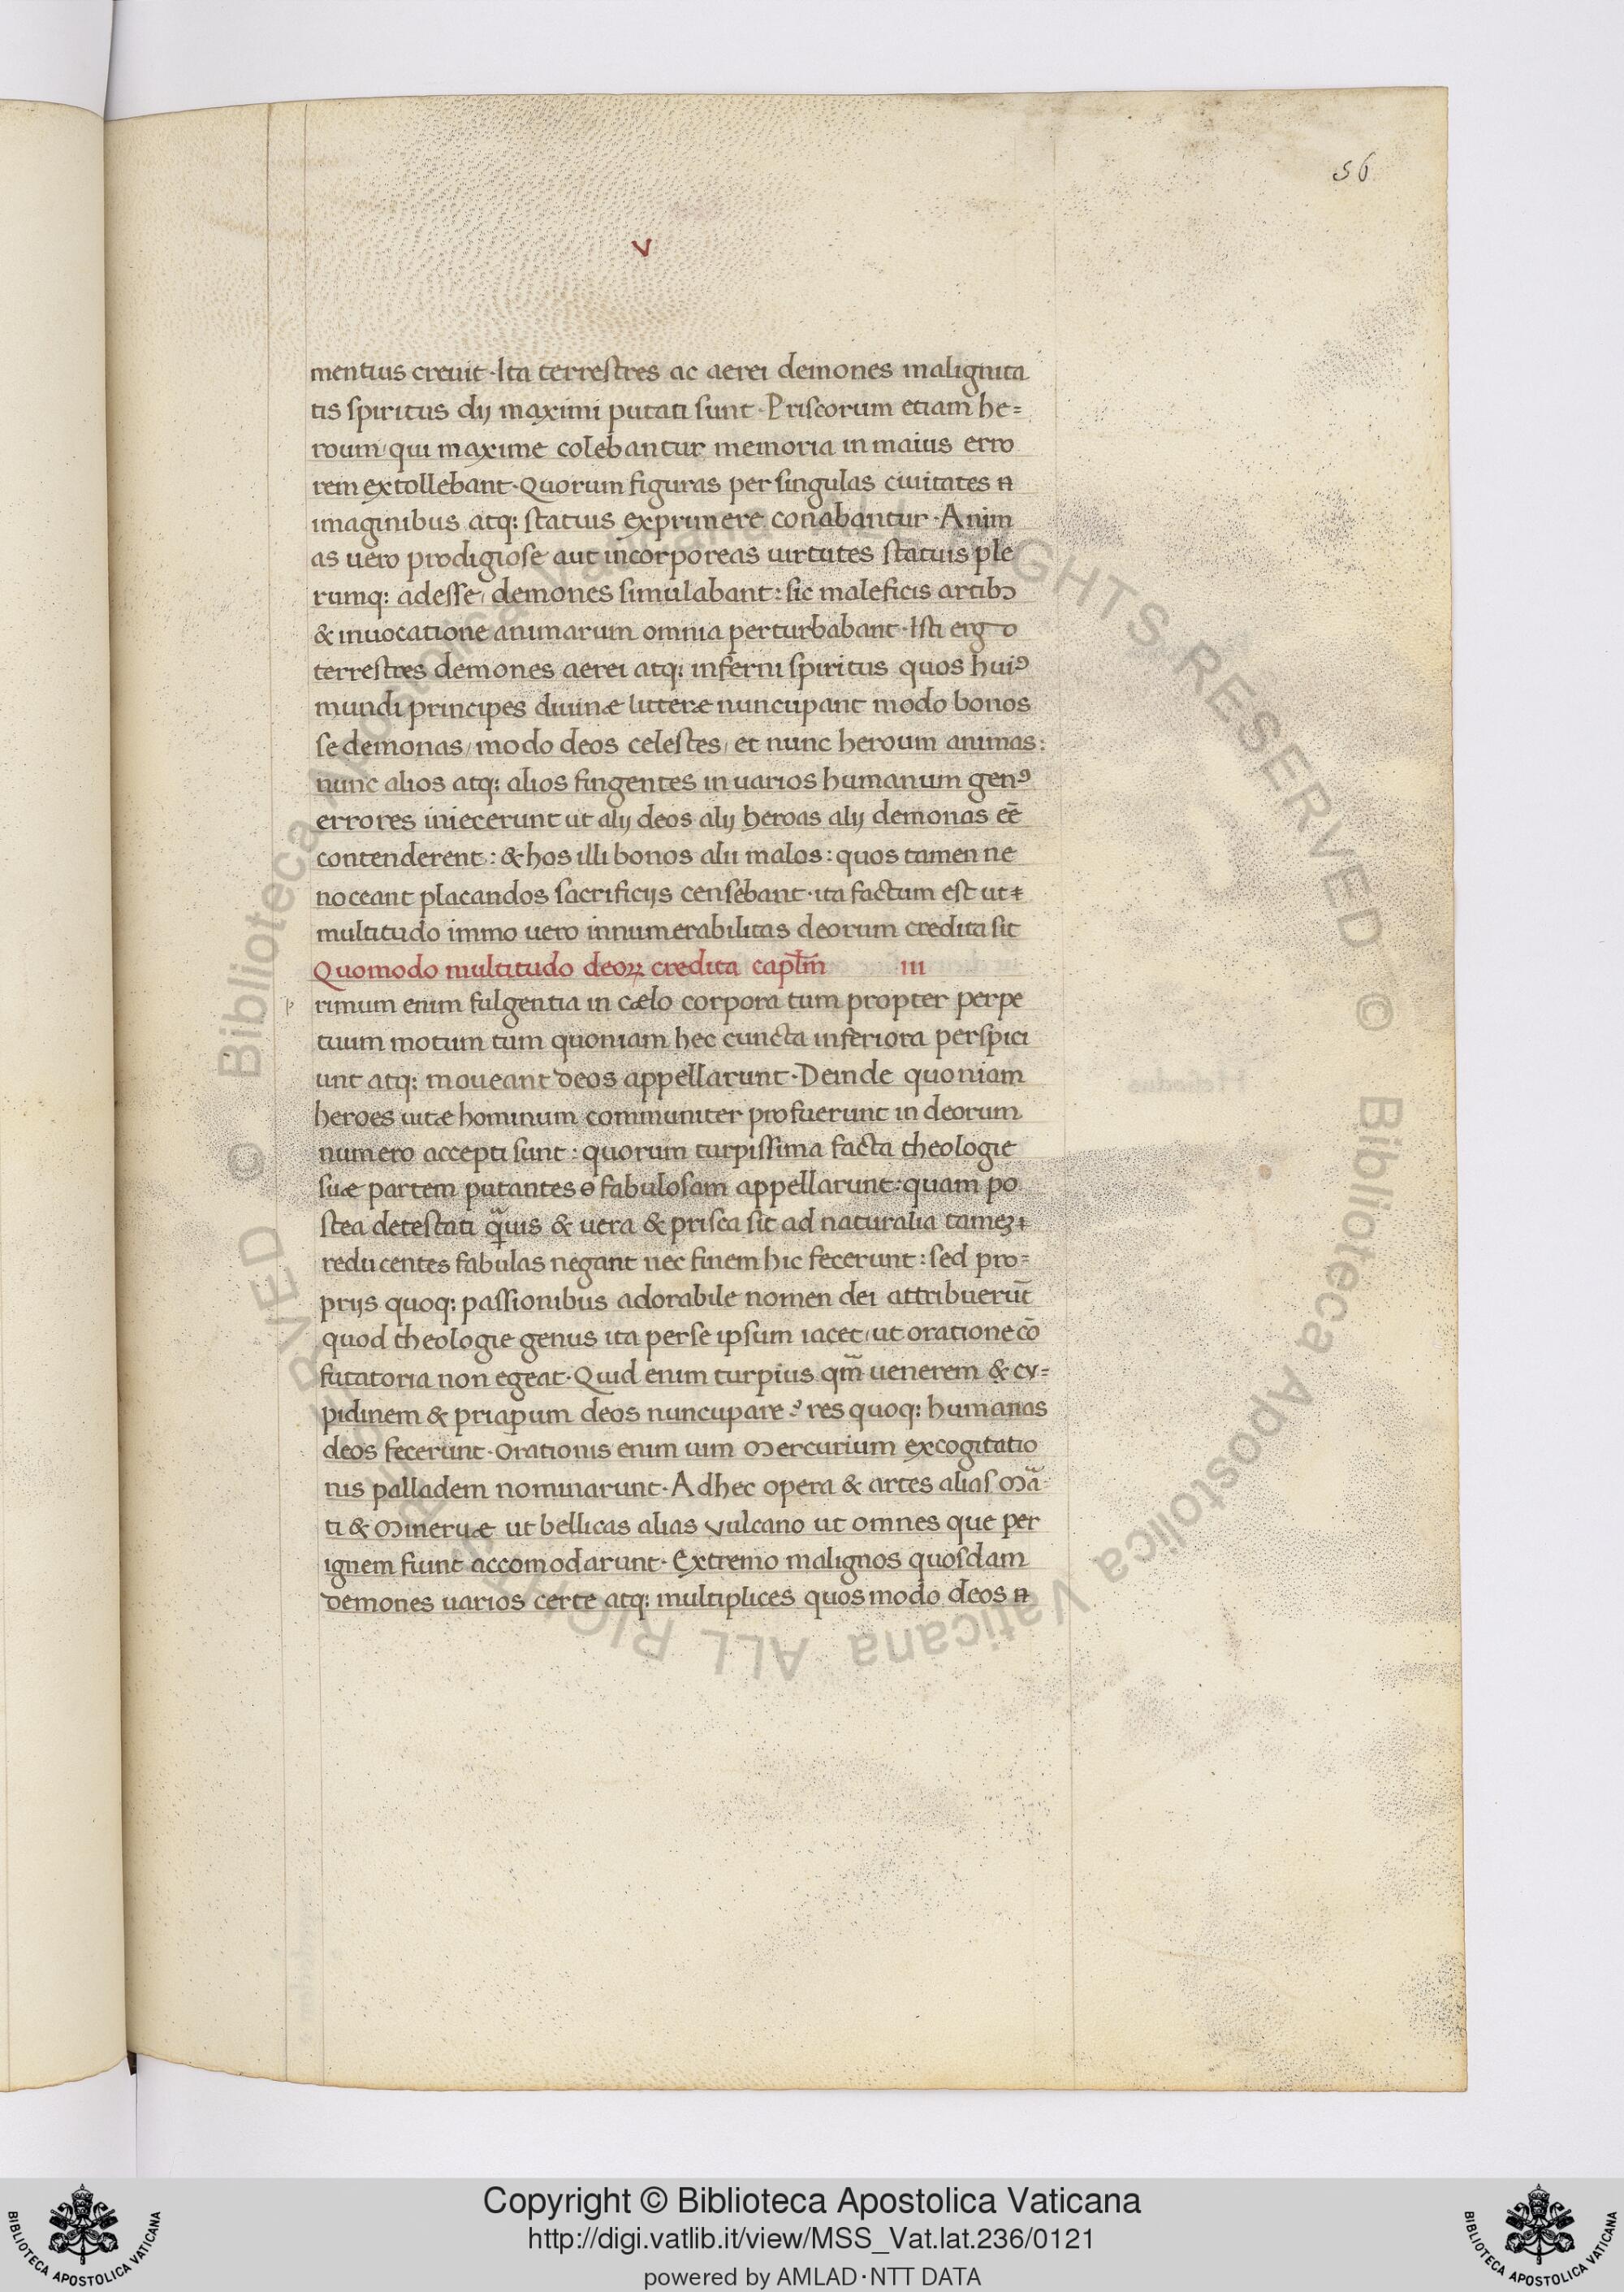 56
v
mentius creuit · Ita terrestres ac aerei demones malignita
tis spiritus dij maximi putati sunt · Priscorum etiam he=
roum/ qui maxime colebantur memoria in maius erro
rem extollebant · Quorum figuras per singulas ciuitates
imaginibus atq: statuis exprimere conabantur · Anim
as uero prodigiose aut incorporeas uirtutes statuis ple
rumq: adesse/ demones simulabant: sic maleficis artibꝫ
& inuocatione animarum omnia perturbabant · Isti ergo
terrestres demones aerei atq: inferni spiritus quos huiꝰ
mundi principes diuinæ litteræ nuncupant modo bonos
se demonas/ modo deos celestes/ et nunc heroum animas:
nunc alios atq: alios fingentes in uarios humanum genꝰ
errores iniecerunt ut alij deos alij heroas alij demonas eē
contenderent: & hos illi bonos alii malos: quos tamen ne
noceant placandos sacrificijs censebant · ita factum est ut
multitudo immo uero innumerabilitas deorum credita sit
Quomodo multitudo deoꝝ credita capl̄m iii
p rimum enim fulgentia in cælo corpora tum propter perpe
tuum motum tum quoniam hec cuncta inferiora perspici
unt atq: moueant deos appellarunt · Deinde quoniam
heroes uitæ hominum communiter profuerunt in deorum
numero accepti sunt: quorum turpissima facta theologie
suæ partem putantes fabulosam appellarunt: quam po
stea detestati quis & uera & prisca sit ad naturalia tameꝫ
reducentes fabulas negant nec finem hic fecerunt: sed pro=
prijs quoq: passionibus adorabile nomen dei attribuerūt
quod theologie genus ita per se ipsum iacet/ ut oratione cō
futatoria non egeat · Quid enim turpius qm̄ uenerem & cv=
pidinem & priapum deos nuncupare? res quoq: humanas
deos fecerunt · Orationis enim uim Mercurium excogitatio
nis palladem nominarunt · Adhec opera & artes alias Mā
ti & Mineruæ ut bellicas alias vulcano ut omnes que per
ignem fiunt accomodarunt · Extremo malignos quosdam
demones uarios certe atq: multiplices quos modo deos
Copyright © Biblioteca Apostolica Vaticana
http://digi.vatlib.it/view/MSS_Vat.lat.236/0121
powered by AMLAD·NTT DATA
BIBLIOTECA APOSTOLICA VATICANA
BIBLIOTECA APOSTOLICA VATICANA
© Biblioteca Apostolica Vaticana ALL RIGHTS RESERVED © Biblioteca Apostolica Vaticana ALL RIGHTS RESERVED